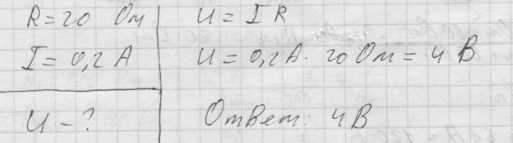 R = 20 Ом
I = 0,2 А
U - ?
U = I R
U = 0,2 А · 20 Ом = 4 В
Ответ: 4 В